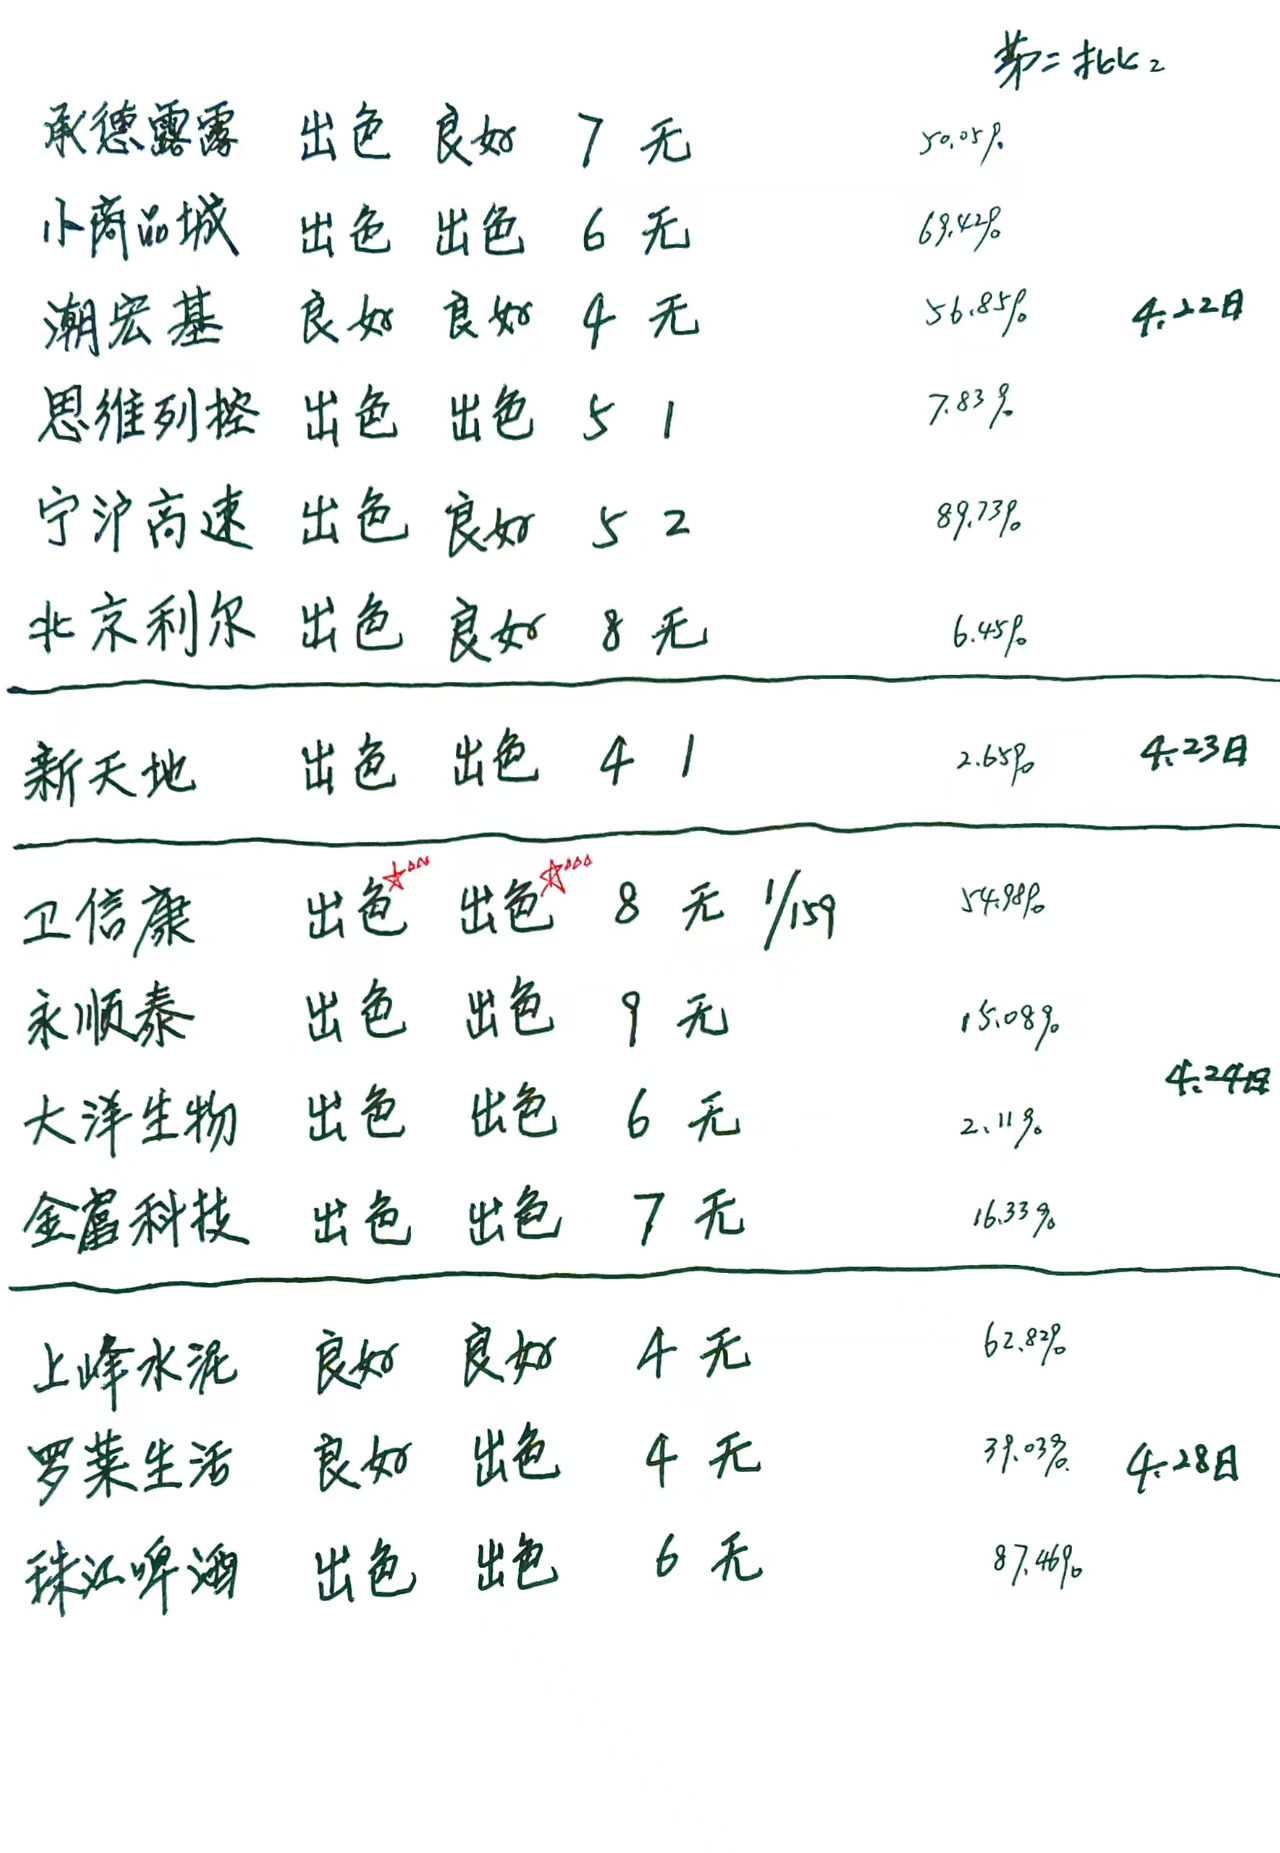 第二批2
承德露露 出色 良好 7 无 50.05%
小商品城 出色 出色 6 无 69.42%
潮宏基 良好 良好 4 无 56.85% 4.22日
思维列控 出色 出色 5 1 7.83%
宁沪高速 出色 良好 5 2 89.73%
北京利尔 出色 良好 8 无 6.45%
新天地 出色 出色 4 1 2.65% 4.23日
卫信康 出色 出色 8 无 1/159 54.98%
永顺泰 出色 出色 9 无 15.08%
4.24日
大洋生物 出色 出色 6 无 2.11%
金富科技 出色 出色 7 无 16.33%
上峰水泥 良好 良好 4 无 62.82%
罗莱生活 良好 出色 4 无 39.03% 4.28日
珠江啤酒 出色 出色 6 无 87.46%